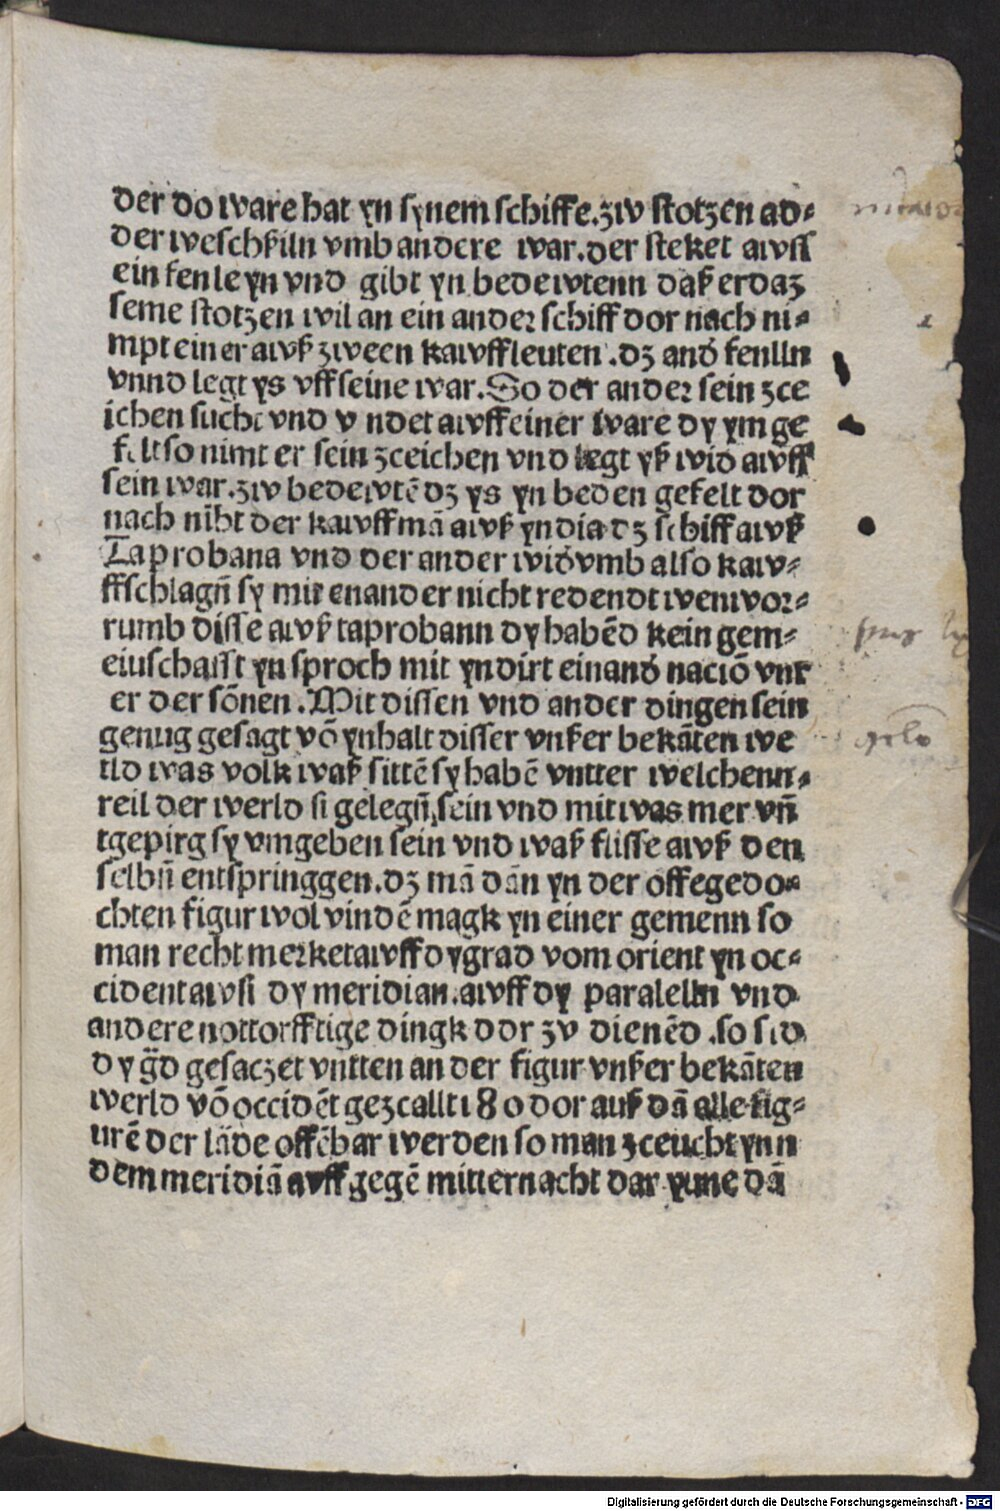 der do ware hat yn synem schiffe.zw stotzen ad⸗
der weschßiln vmb andere war.der steket awss
ein fenle yn vnd gibt yn bedewtenn daß er daz
seme stotzen wil an ein ander schiff dor nach ni⸗
mpt einer awß zween kawffleuten.dz and' fenlln
vnnd legt ys vff seine war.So der ander sein zce
ichen sucht vnd v ndet awff einer ware dy ym ge
felt so nimt er sein zceichen vnd legt yß wid' awff
sein war.zw bedewtē dz ys yn beden gefelt dor
nach nīht der kawffmā awß yndia dz schiff awß
Taprobana vnd der ander wid'vmb also kaw⸗
ffschlagn̄ sy mit enander nicht redendt wenwor⸗
rumb disse awß taprobann dy habēd kein gem⸗
eiuschafft yn sproch mit yndirt einand' naciō vnt
er der sōnen.Mit dissen vnd ander dingen sein
genug gesagt vō ynhalt disser vnßer bekāten we
tld was volk waß sittē sy habē vntter welchenn⸗
teil der werld si gelegn̄ sein vnd mit was mer vn̄
tgepirg sy vmgeben sein vnd waß flisse awß den
selbn̄ entspringgen.dz mā dān yn der offegedo⸗
chten figur wol vindē magk yn einer gemenn so
man recht merket awff dy grad vom orient yn oc⸗
cident awsi dy meridian.awff dy paralelln vnd
andere nottorfftige dingk dor zv dienēd.so sid
dy gd̄ gesaczet vntten an der figur vnßer bekāten
werld vō occidēt gezcallt 180 dor auß dā alle fig⸗
urē der lāde offēbar werden so man zceucht ynn
dem meridiā avff gegē mitternacht dar ynne dā
Digitalisierung gefördert durch die Deutsche Forschungsgemeinschaft - DFG